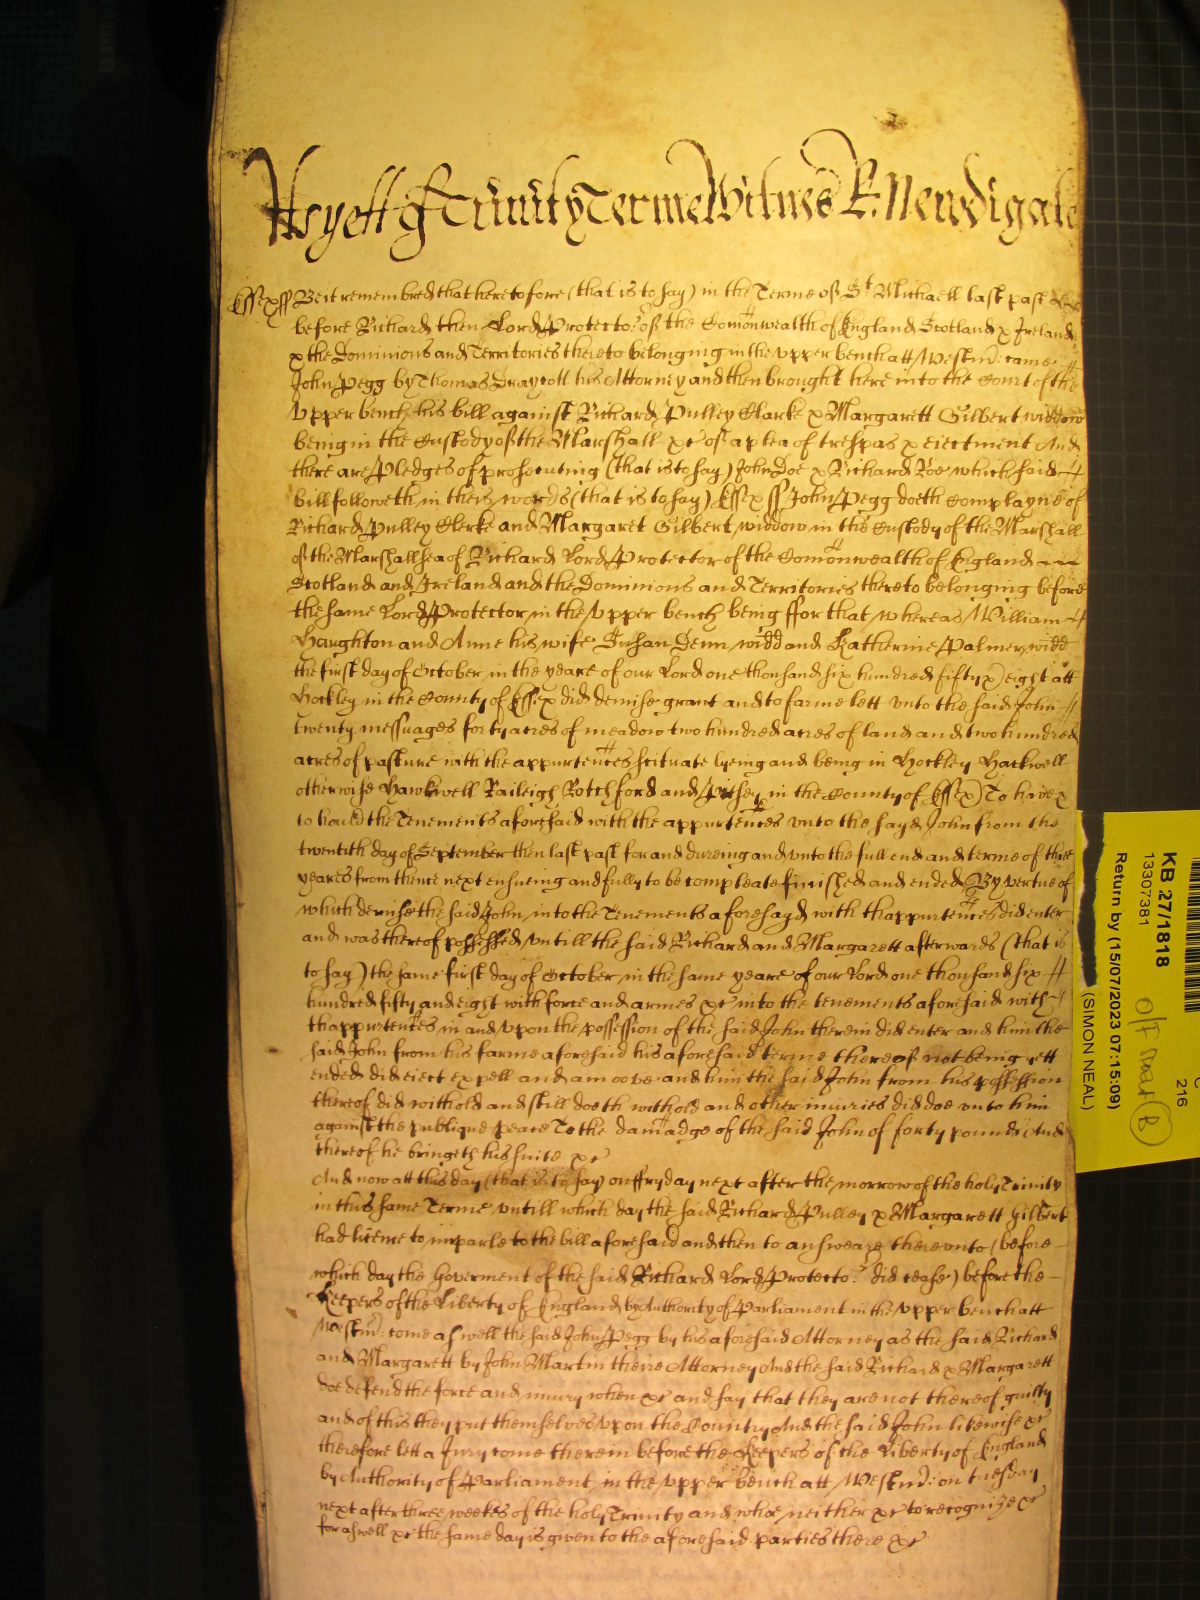 As yett of Trinity Terme Witnes R: Newdigate
Essex ss Be it remembred that heretofore (that is to say) in the Terme of St Michaell last past
before Richard then Lord Protector of the Comonwealth of England Scotland & Ireland
& the Dominions and Territories thereto belonging in the upper bench att Westmr: came
John Pegg by Thomas Draycott his Attorney and then brought here into the Court of the
Upper bench his bill against Richard Pulley Clarke & Margarett Gilbert widdow
being in the Custody of the Marshall &c of a plea of trespas & eiectment And
there are Pledges of prosecuting (that is to say) John Doe & Richard Roe which said
bill followeth in theis words (that is to say) Essex ss John Pegg doeth Complayne of
Richard Pulley Clerke and Margaret Gilbert widdow in the Custody of the Marshall
of the Marshallsea of Richard Lord Protector of the Comonwealth of England
Scotland and Ireland and the Dominions and Territories thereto belonging before
the same Lord Protector in the Upper bench being ffor that whereas William
Haughton and Anne his wife Susan Denn widd and Katherine Palmer widd
the first day of October in the yeare of our Lord one thousand six hundred fifty & eight att
Hockley in the County of Essex did demise grant and to farme lett unto the said John
twenty messuages forty acres of meadow two hundred acres of land and two hundred
acres of pasture with the appurtences scituate lyeing and being in Hockley Hackwell
otherwise Hawkwell Raileigh Rotchford and Pitsey in the County of Essex To have &
to hould the Tenements aforesaid with the appurtences unto the sayd John from the
twentith day of September then last past for and dureing and unto the full end and terme of three
yeares from thence next ensueing and fully to be compleate finished and ended By vertue of
which demise the said John into the Tenements aforesayd with thappurtences did enter
and was thereof possessed untill the said Richard and Margarett afterwards (that is
to say) the same first day of October in the same yeare of our Lord one thousand six
hundred fifty and eight with force and armes &c into the tenements aforesaid with
thappurtences in and upon the possession of the said John therein did enter and him the
said John from his farme aforesaid his aforesaid terme thereof not being yett
ended did eiect expell and amoove and him the said John from his possession
thereof did withold and still doeth withold and other iniuries did doe unto him
against the publique peace To the damadge of the said John of forty pounds And
thereof he bringeth his suite &c
And now att this day (that is to say) on ffryday next after the morrow of the holy Trinity
in this same Terme untill which day the said Richard Pulley & Margarett Gilbert
had licence to imparle to the bill aforesaid and then to answeare thereunto (before
which day the Goverment of the said Richard Lord Protector: did cease) before the
Keepers of the Liberty of England by Authority of Parliament in the Upper bench att
Westmr: come aswell the said John Pegg by his aforesaid Attorney as the said Richard
and Margarett by John Martin theire Attorney And the said Richard & Margarett
doe defend the force and iniury when &c and say that they are not thereof guilty
and of this they put themselves upon the Country And the said John likewise &c
therefore lett a Jury come therein before the Keepers of the Liberty of England
by Authority of Parliament in the Upper bench att Westmr: on tuesday
next after three weekes of the holy Trinity and whoe neither &c to recognize &c
for aswell &c the same day is given to the aforesaid parties there &c
KB 27/1818
13307381
Return by (15/07/2023 07:15:09)
(SIMON NEAL)
216